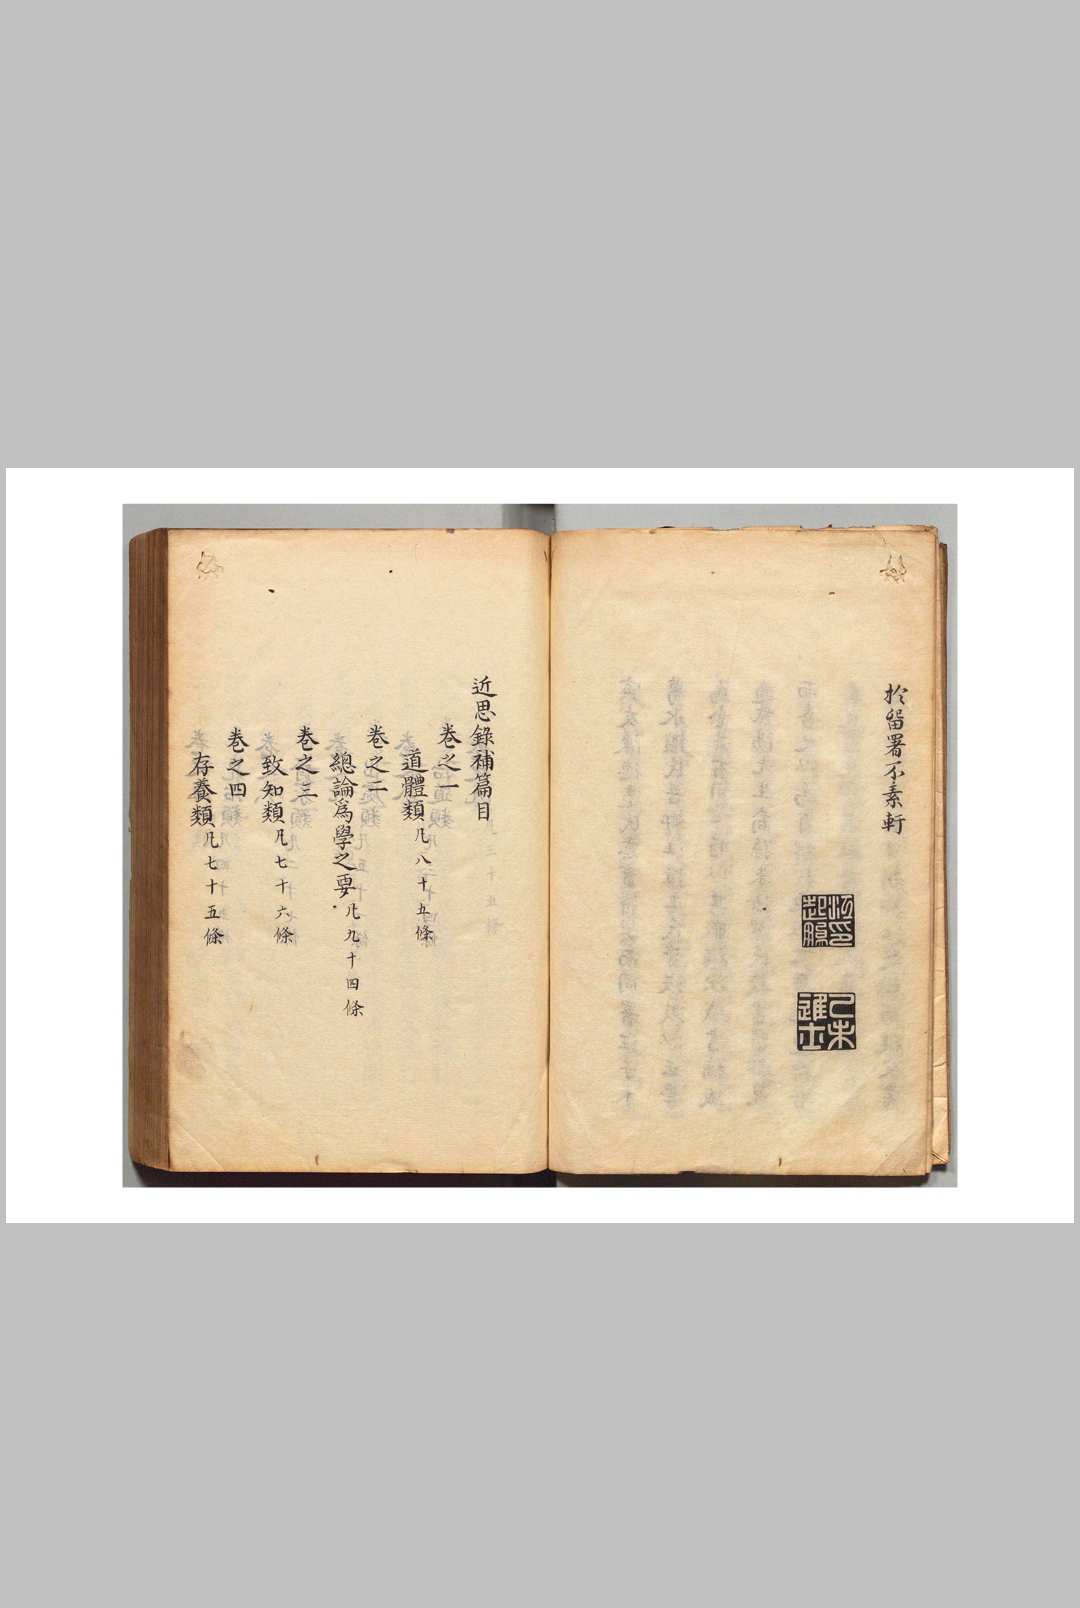 於留署不素軒
江起鵬印
己未進士
近思錄補篇目
卷之一
道體類凡八十五條
卷之二
總論爲學之要凡九十四條
卷之三
致知類凡七十六條
卷之四
存養類凡七十五條